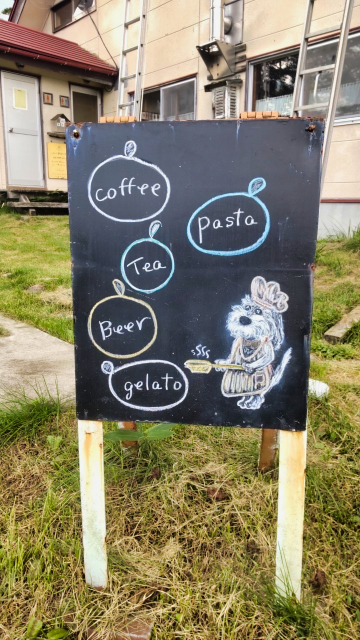 coffee
Pasta
Tea
Beer
gelato